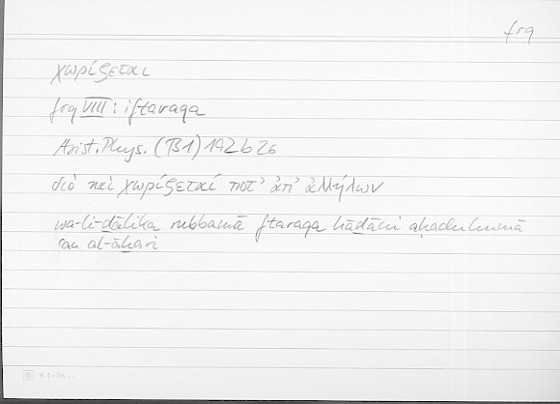 frq
χωρίζεται
frq VIII : iftaraqa
Arist. Phys. (B1) 192b26
διὸ καὶ χωρίζεταί ποτ’ ἀπ’ ἀλλήλων
wa-li-ḏālika rubbamā ftaraqa hāḏāni aḥaduhumā
ʿan al-āḫari